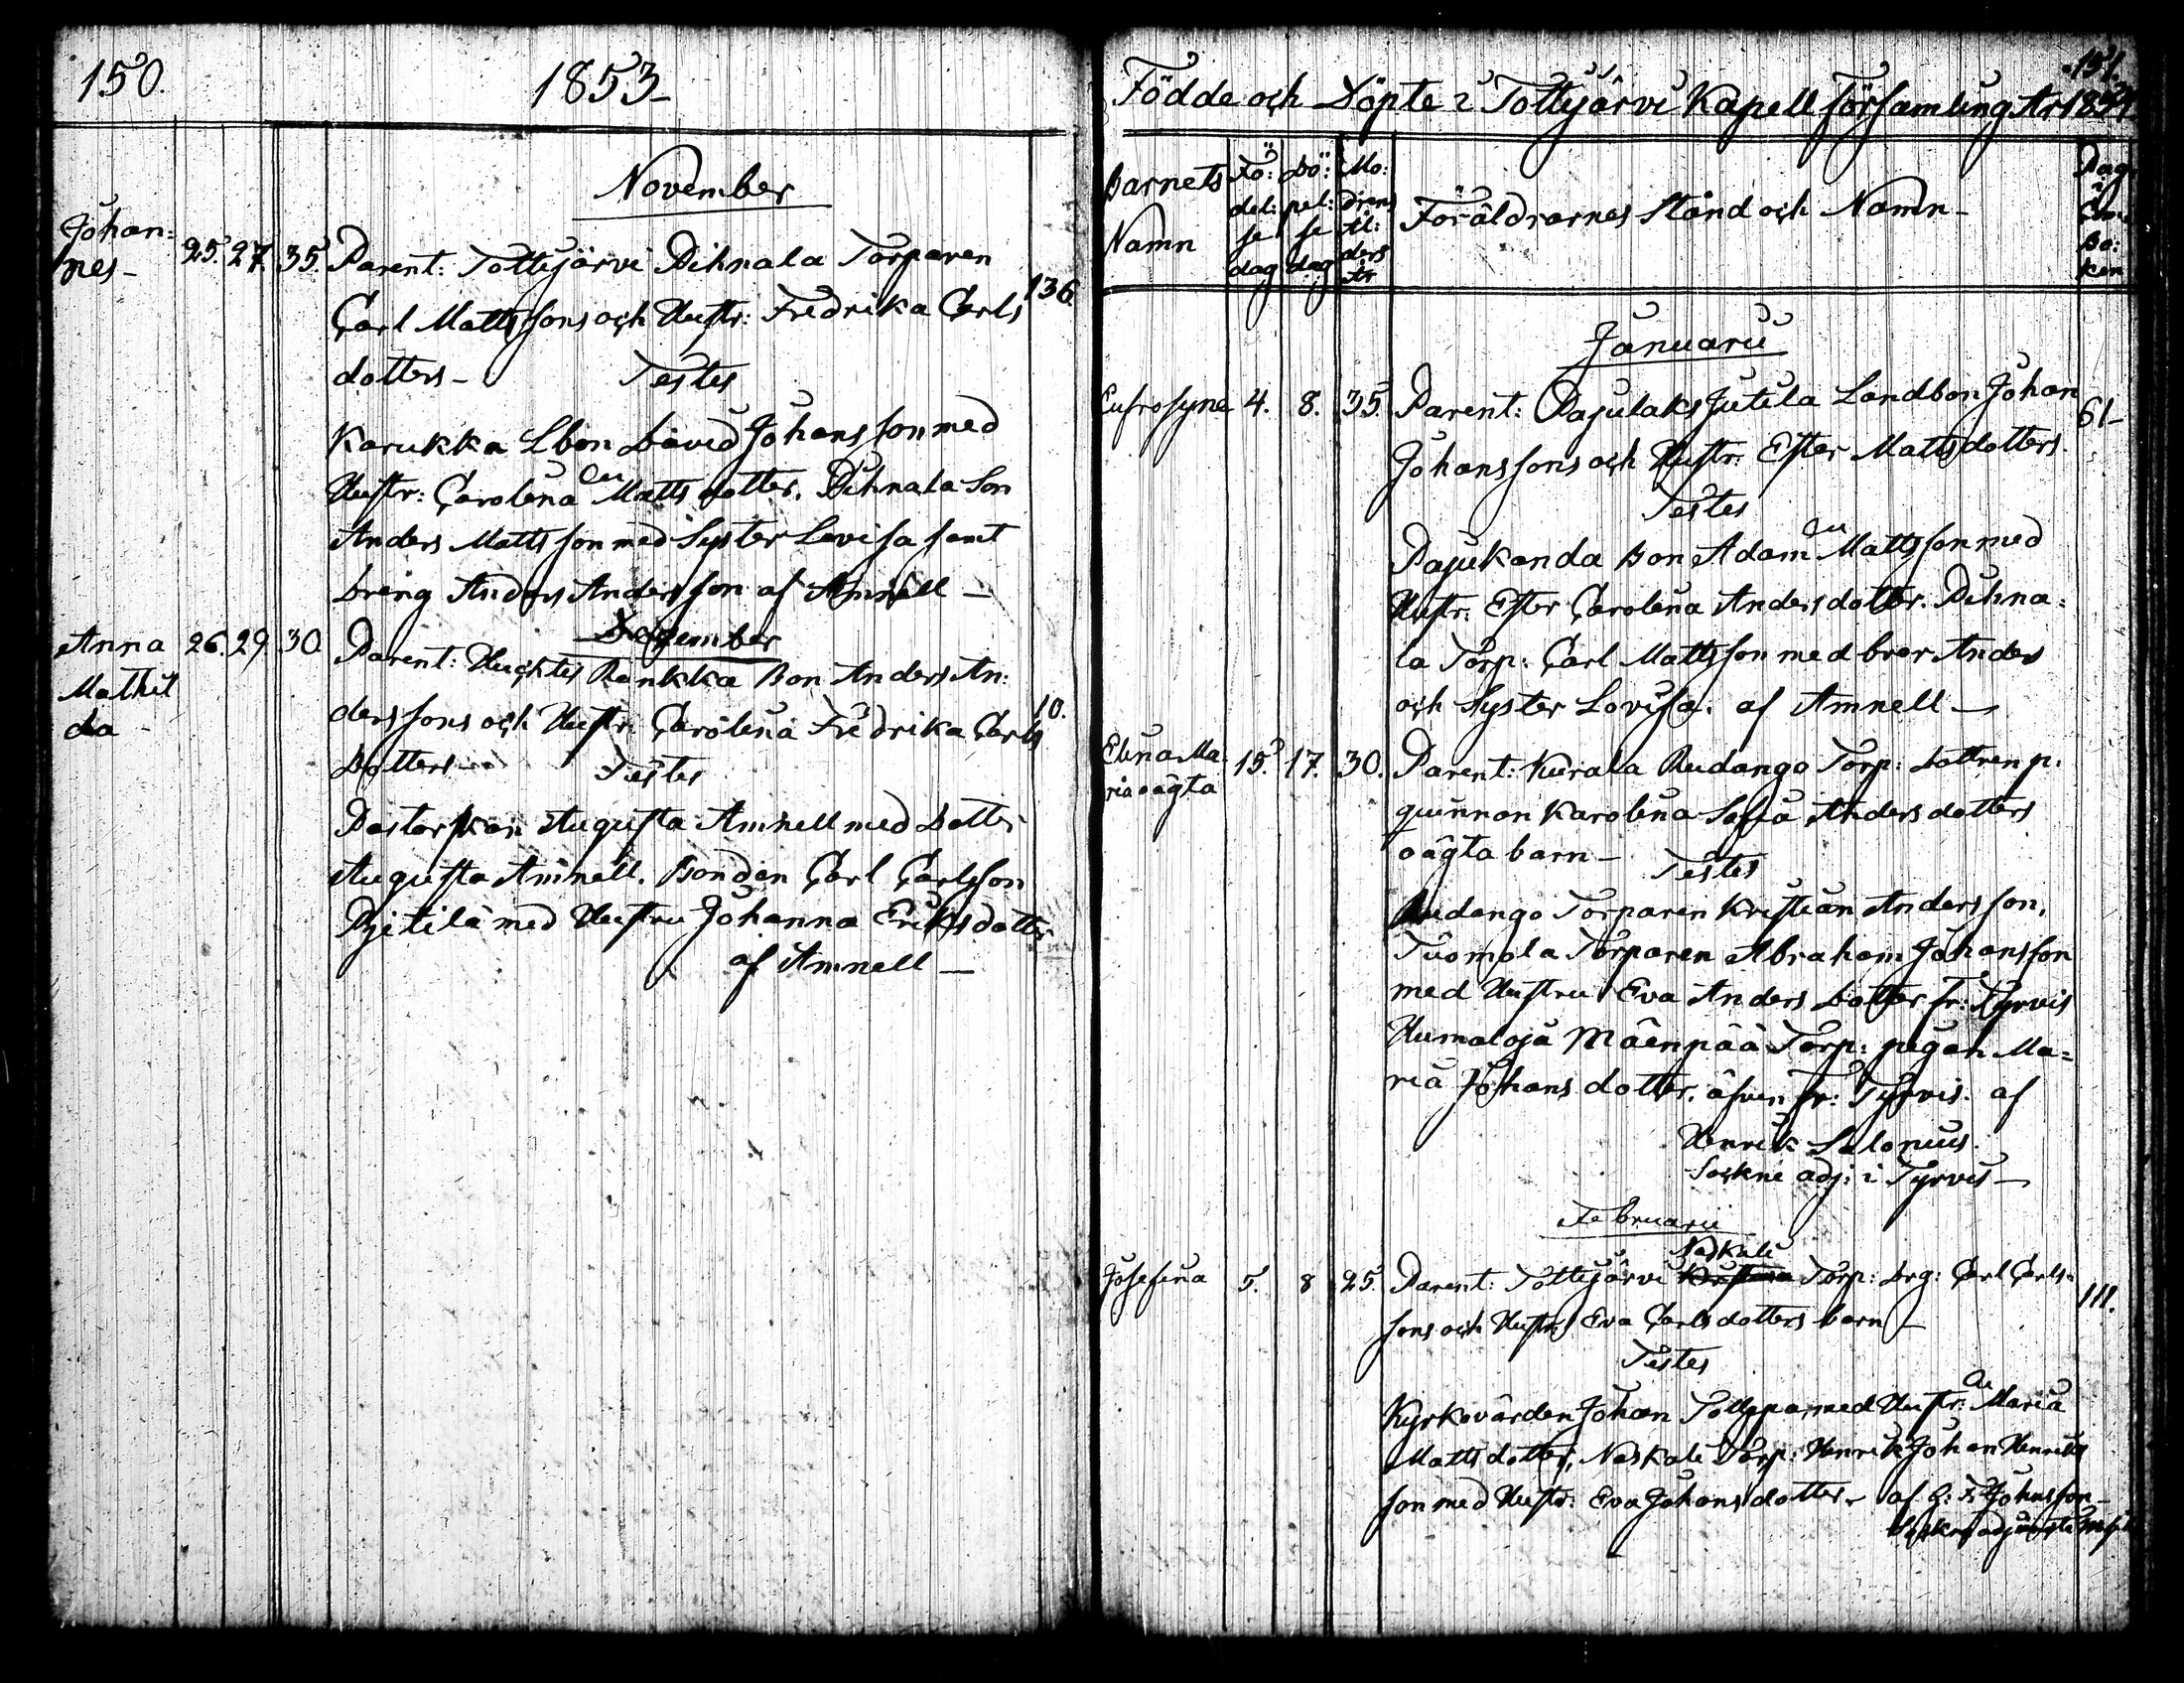 150.
1853-
November
Johan=
nes-
25. 27. 35. Parent: Tottijärvi Pihnala Torparen
Carl Mattssons och Hustr: Fredrika Carls
136.
dotters-
Testes
Karukka Lbon David Johansson med
Hustr: Carolina Matts dotter. Pihnala Son
Anders Mattsson med Syster Lovisa samt
Dräng Anders Andersson af Amnell -
December
Anna 26. 29 30. Parent: Huchtis Rankka Bon Anders An:
Mathil
da -
derssons och Hustr: Carolina Fredrika Carls
10.
Dotters
Testes
Pastorskan Augusta Amnell med Dotter
Augusta Amnell. Bonden Carl Carlsson
Pietilä med Hustru Johanna Eriksdotter
af Amnell -
151.
Födde och Döpte i Tottijärvi Kapell Församling År 1854
Barnets
Namn
Fö:
del:
se
dag
Dö:
pel:
se
dag
Mo:
drens
ål:
ders
År
Föräldrarnes Stånd och Namn-
Dag
Bo:
ken
Januarii
Eufrosyne 4. 8. 35. Parent: Pajulaks Jutila Landbon Johan
61-
Johanssons och Hustr: Ester Matts dotters.
Testes
Pajukanda Bon Adam Mattsson med
Hustr: Ester Carolina Anders dotter. Pihna=
la Torp: Carl Mattsson med bror Anders
och Syster Lovisa. af Amnell -
Elina Ma
ria oägta
15. 17. 30. Parent: Kurala Rudango Torp: dottren p:
quinnan Karolina Sofia Anders dotters
oägta barn -
Testes
Rudango Torparen Kristian Andersson,
Tuomola Torparen Abraham Johansson
med Hustru Eva Anders Dotter fr: Tyrvis
Humaloja Mäenpää Torp: pigan Ma=
ria Johans dotter. äfven fr: Tyrvis. af
Henrik Salonius
Sockne adj: i Tyrvis -
Februarii
Naskali
Josefina 5. 8 25. Parent: Tottijärvi Torp: drg: Carl Carls=
111.
sons och Hustr: Eva Carls dotters barn -
Testes
Kyrkovärden Johan med Hustr: Maria
Matts dotter, Naskali Torp: Henrik Johan Henriks
son med Hustr: Eva Johans dotter - af Johnsson-